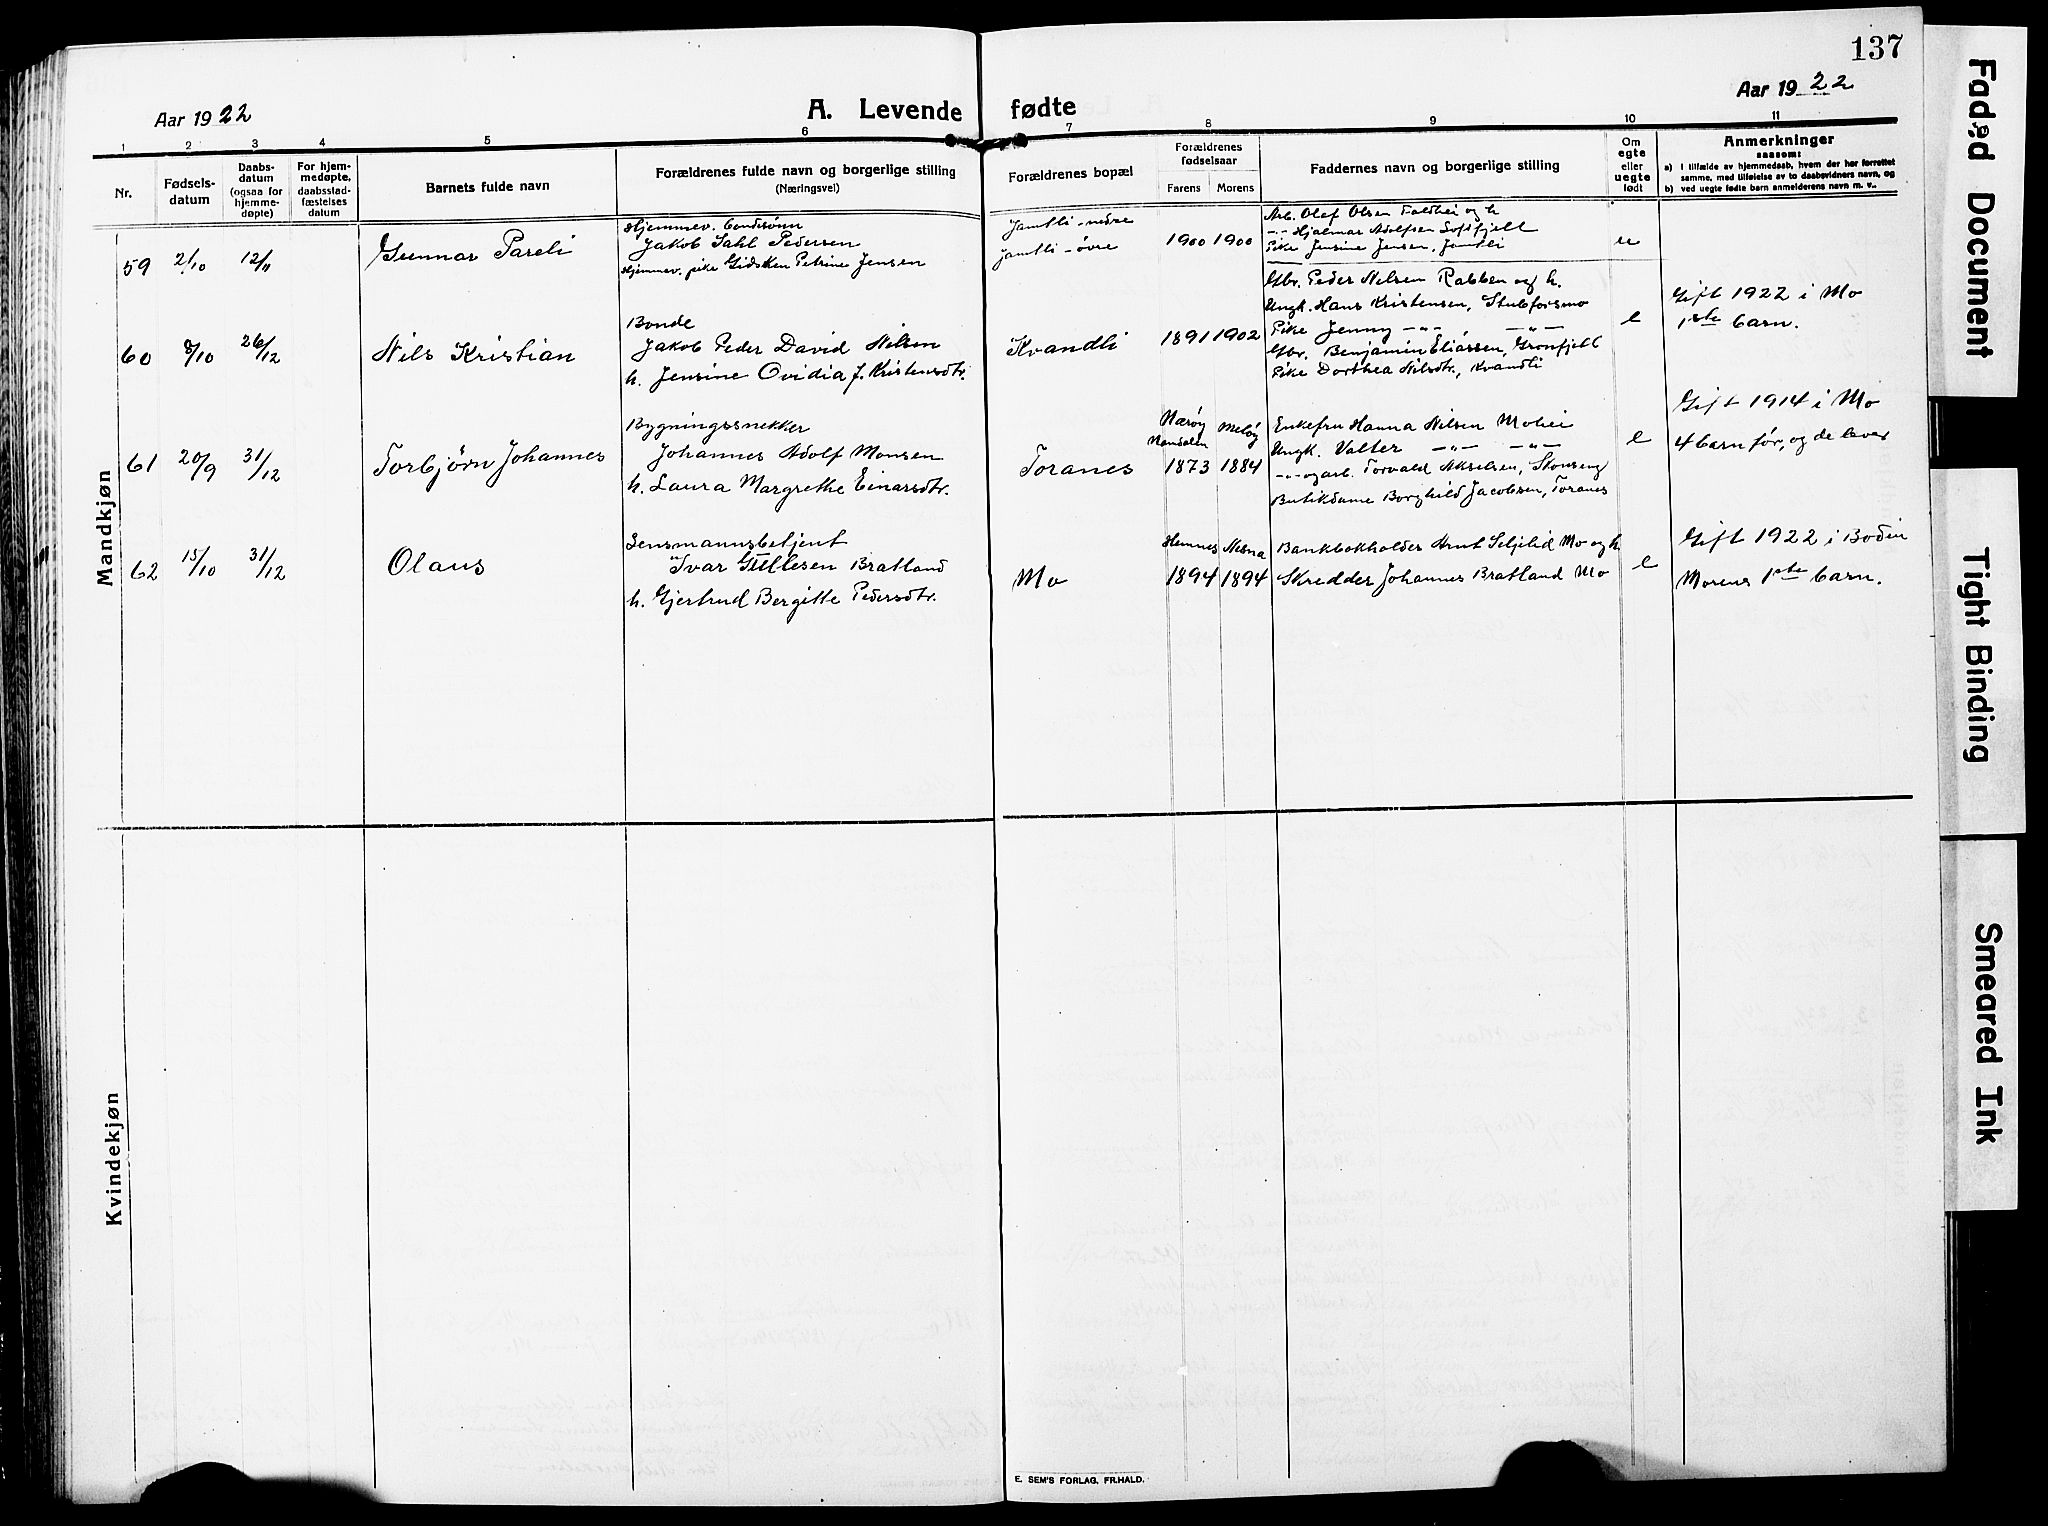 137
Aar 1922
A. Levende fødte
Aar 1922
1 2 3 4 5 6 7 8 9 10 11
Nr.
Fødsels-
datum
Daabs-
datum
(ogsaa for
hjemme-
døpte)
For hjem-
medøpte,
daabsstad-
fæstelses
datum
Barnets fulde navn
Forældrenes fulde navn og borgerlige stilling
(Næringsvei)
Forældrenes bopæl
Forældrenes
fødselsaar
Farens Morens
Faddernes navn og borgerlige stilling
Om
egte
eller
uegte
født
Anmerkninger
saasom:
a) i tilfælde av hjemmedaab, hvem der har forrettet
samme, med tilføielse av to daabsvidners navn, og
b) ved uegte fødte barn anmelderens navn m. v..
Mandkjøn
59 2/10 12/11 Gunnar Pareli
Hjemmev.
Jakob Dahl Pedersen
Hjemmev. pike Gidsken Petrine Jensen
Jamtli - nedre
Jamtli - övre
1900 1900
Arb. Olaf Olsen og h
-"- Hjalmar Adolfsen
Pike Jensine Jensen, Jamtli
ue
60 26/12 Nils Kristian
Bonde
Jakob Peder David Nilsen
h. Jensine Ovidia f. Kristensdtr.
Kvandli
1891 1902
Gbr. Peder Nilsen Rabben og h.
Ungk. Hans Kristensen, Stubforsmo
Pike Jenny -"- -"-
Gbr. Benjamin Eliassen, Grönfjell
Pike Dorthea Nilsdtr., Kvandli
e
Gift 1922 i Mo
1ste barn.
61 20/9 31/12 Torbjørn Johannes
Bygningssnekker
Johannes Adolf Monsen
h. Laura Margrethe Einarsdtr.
Toranes
Nærøy
Namdalen
1873
Meløy
1884
Enkefru Hanna Nilsen Mohei
Ungk. Valter -"- -"-
-"- og arb. Torvald Akselsen, Storseng
Butikdame Borghild Jacobsen, Toranes
e
Gift 1914 i Mo
4 barn før, og de lever
62 15/10 31/12 Olaus
Lensmannsbetjent
Ivar Gullesen Bratland
h. Gjertrud Bergitte Pedersdtr.
Mo
Hemnes
1894
Nesna
1894
Bankbokholder Arnt Seljelid Mo og h
Skredder Johannes Bratland Mo
e
Gift 1922 i Bodin
Morens 1ste barn.
Kvindekjøn
E. SEM'S FORLAG, FR.HALD.
Faded Document
Tight Binding
Smeared Ink